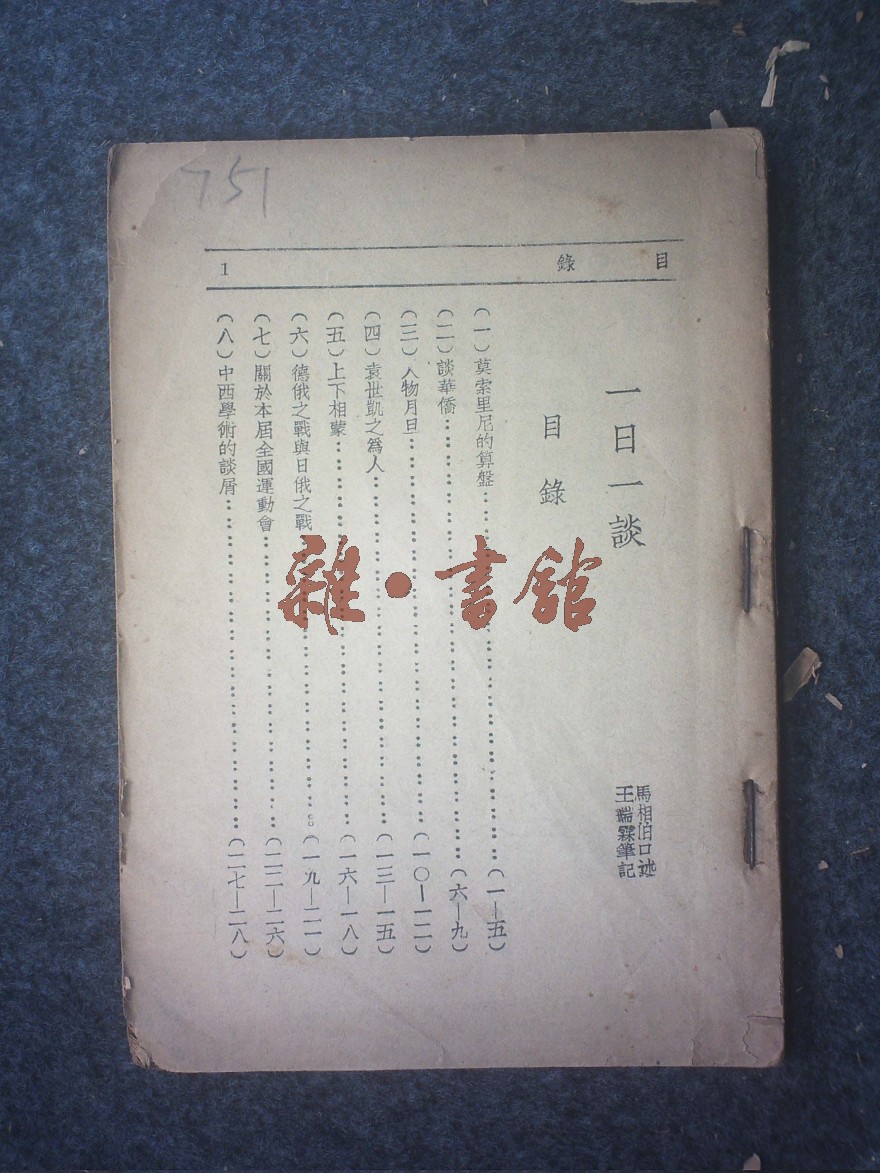 751
目錄 1
一日一談
馬相伯口述
王瑞霖筆記
目錄
(一)莫索里尼的算盤⋯⋯(一—五)
(二)談華僑⋯⋯(六—九)
(三)人物月旦⋯⋯(一〇—一二)
(四)袁世凱之爲人⋯⋯(一三—一五)
(五)上下相蒙⋯⋯(一六—一八)
(六)德俄之戰與日俄之戰⋯⋯(一九—二一)
(七)關於本屆全國運動會⋯⋯(二二—二六)
(八)中西學術的談屑⋯⋯(二七—二八)
雜•書館